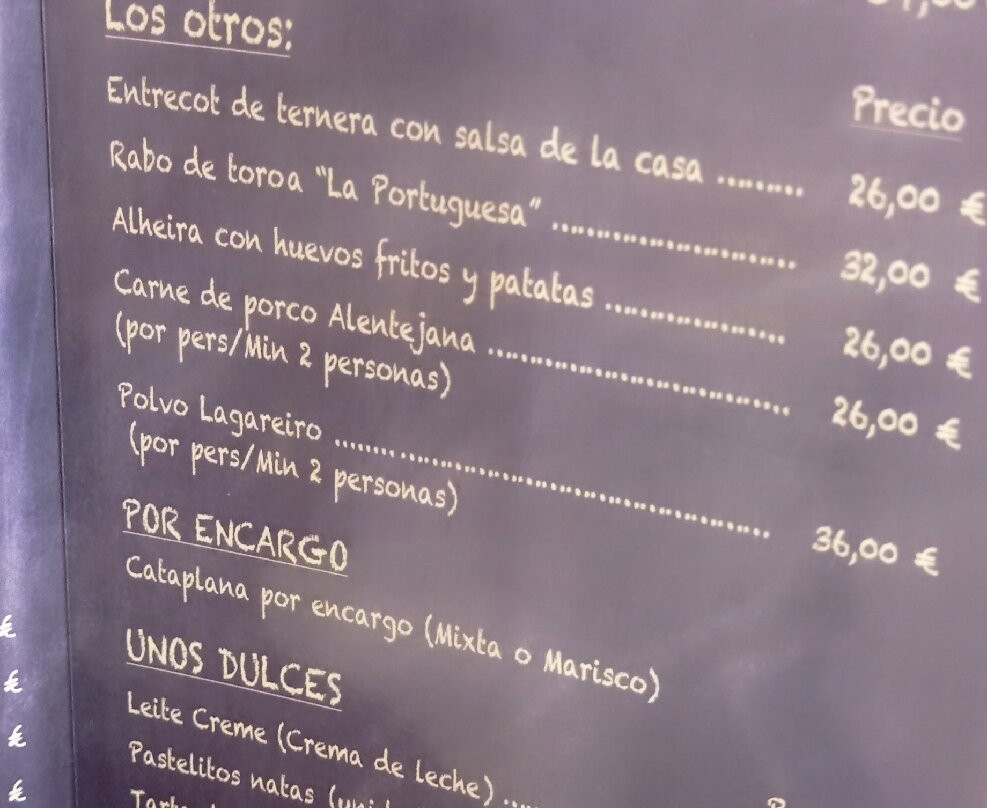 Los otros:
Precio
Entrecot de ternera con salsa de la casa ......... 26,00 €
Rabo de toroa "La Portuguesa" ........................... 32,00 €
Alheira con huevos fritos y patatas .................... 26,00 €
Carne de porco Alentejana ................................. 26,00 €
(por pers/Min 2 personas)
Polvo Lagareiro .................................................. 36,00 €
(por pers/Min 2 personas)
POR ENCARGO
Cataplana por encargo (Mixta o Marisco)
UNOS DULCES
Leite Creme (Crema de leche) ....
Pastelitos natas
€
€
€
€